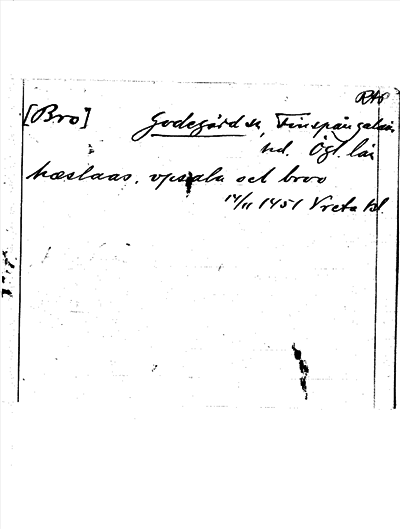 RAP
[Bro] Godegård sn, Finspångaläns
hd. Ögl. län
hæslaas. vpsala och broo
14/11 1451 Vreta kl.